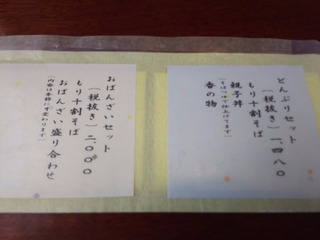 どんぶりセット
(税抜き)一、四八〇
もり十割そば
親子丼
香の物
おばんざいセット
(税抜き)二、〇〇〇
もり十割そば
おばんざい盛り合わせ
(内容は季節にて変わります)